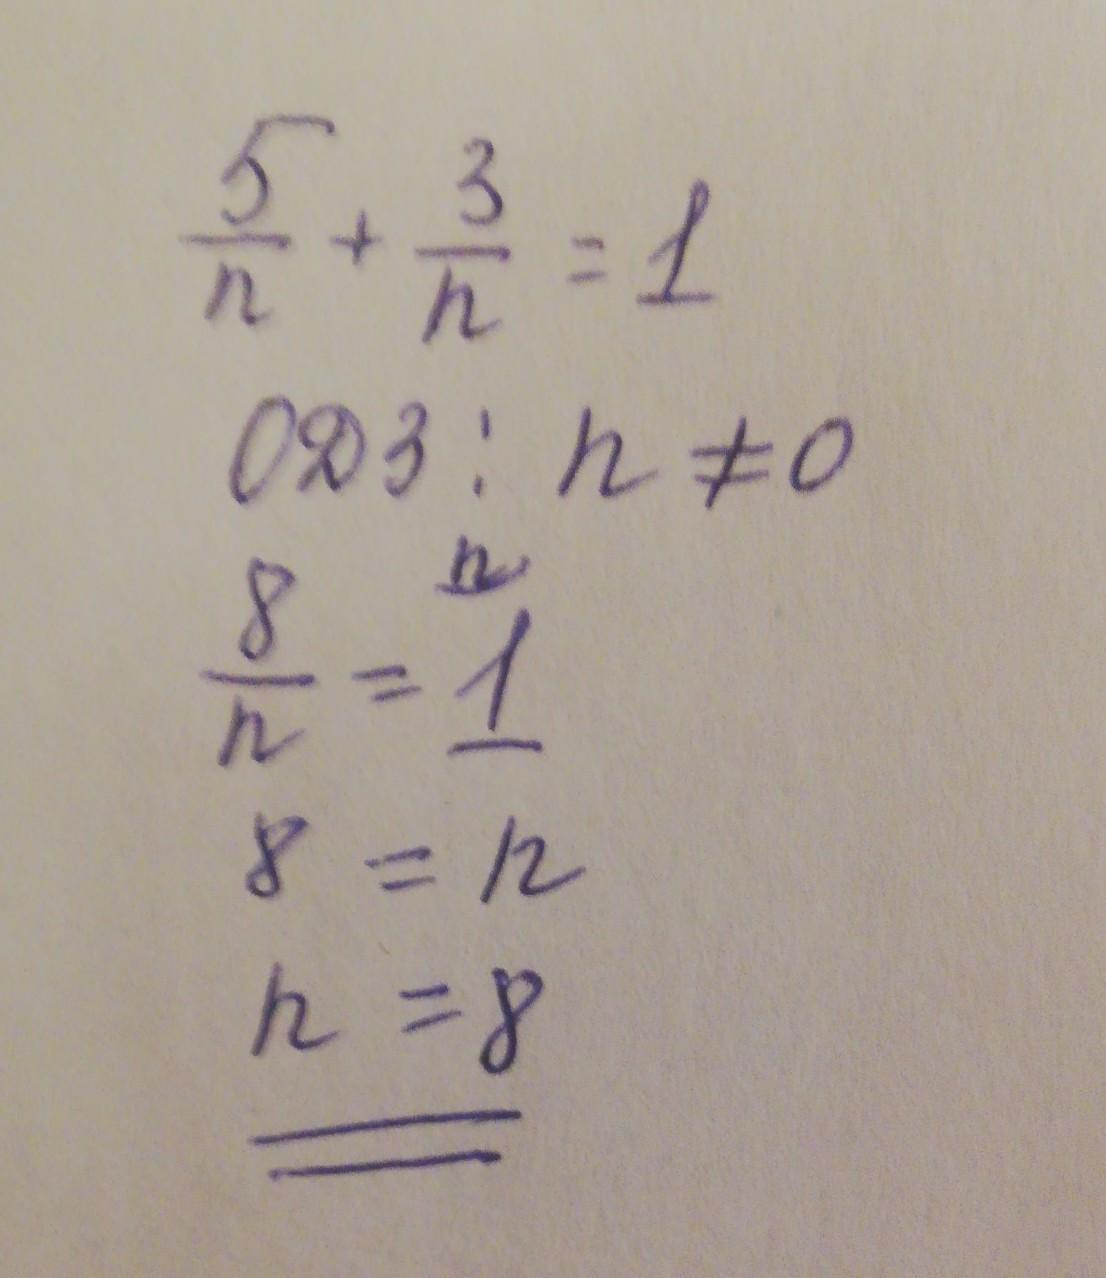 5/n + 3/n = 1
ОДЗ: n ≠ 0
n
8/n = 1
8 = n
n = 8